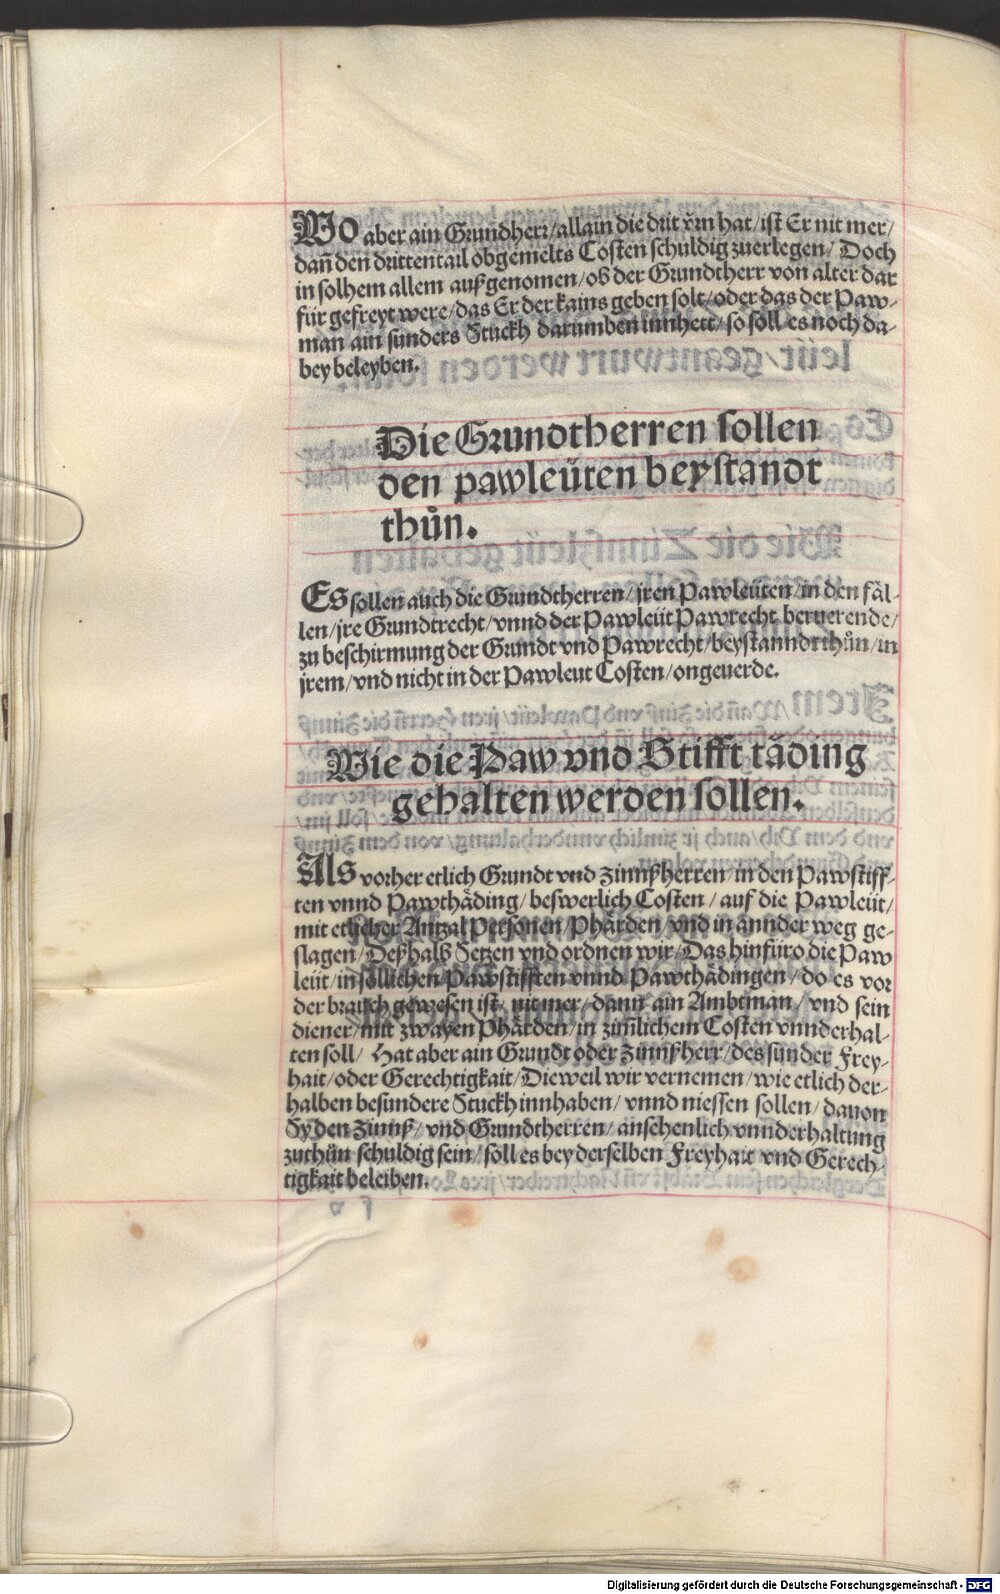 Wo aber ain Grundherr/allain die drit vrn hat/ist Er nit mer/
dañ den drittentail obgemelts Costen schuldig zuerlegen/ Doch
in solhem allem außgenomen/ob der Grundtherr von alter dar
für gefreyt were/das Er der kains geben solt/oder das der Paw-
man ain sunders Stuckh darumben innhett/so soll es noch da-
bey beleyben.
Die Grundtherren sollen
den pawleüten beystandt
thůn.
Es sollen auch die Grundtherren/jren Pawleüten/in den fäl-
len/jre Grundtrecht/vnnd der Pawleüt Pawrecht beruerende/
zu beschirmung der Grundt vnd Pawrecht/beystanndt thůn/in
jrem/vnd nicht in der Pawleut Costen/ongeuerde.
Wie die Paw vnd Stifft täding
gehalten werden sollen.
Als vorher etlich Grundt vnd Zinnßherren/in den Pawstiff-
ten vnnd Pawthäding/beswerlich Costen/auf die Pawleüt/
mit etlicher Antzal Personen/Phärden/vnd in annder weg ge-
slagen/Deßhalb Setzen vnd ordnen wir/Das hinfüro die Paw
leüt/in söllichen Pawstifften vnnd Pawthädingen/do es vor
der brauch gewesen ist/nit mer/dann ain Ambtman/vnd sein
diener/mit zwayen Phärden/in zimlichem Costen vnnderhal-
ten soll/ Hat aber ain Grundt oder Zinnßherr/des sunder Frey-
hait/oder Gerechtigkait/Dieweil wir vernemen/wie etlich der-
halben besundere Stuckh innhaben/vnnd niessen sollen/dauon
Sy den Zinnß/vnd Grundtherren/ansehenlich vnnderhaltung
zuthůn schuldig sein/soll es bey derselben Freyhait vnd Gerech-
tigkait beleiben.
Digitalisierung gefördert durch die Deutsche Forschungsgemeinschaft - DFG